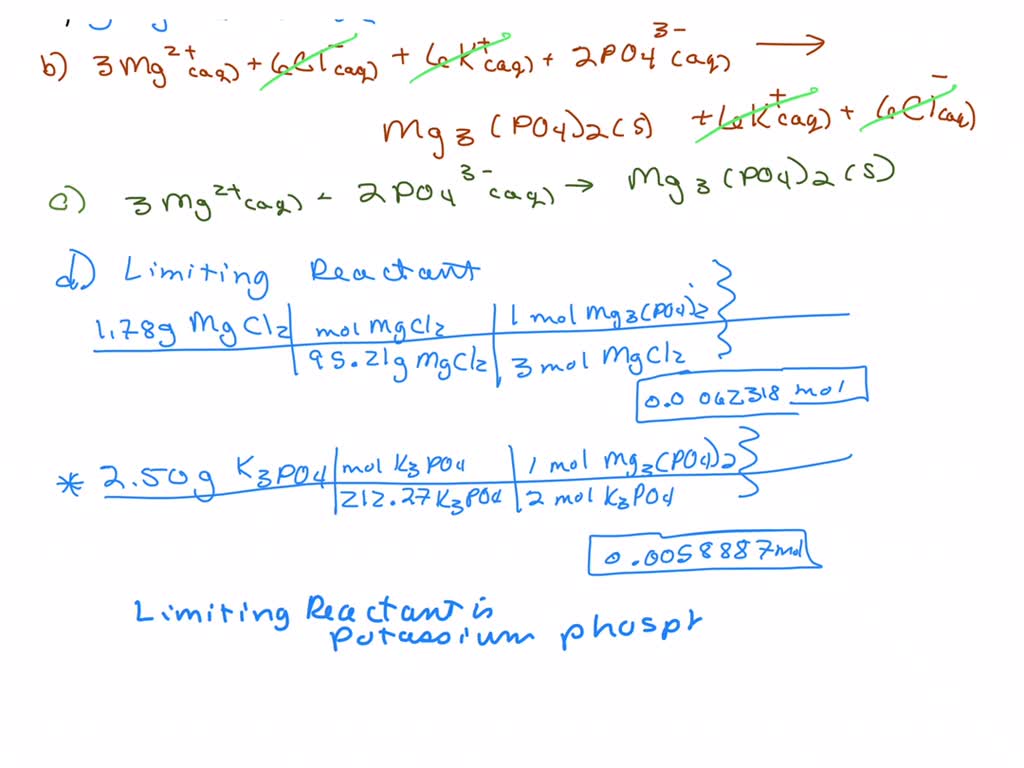 b) 3Mg²⁺(aq) + 6Cl⁻(aq) + 6K⁺(aq) + 2PO4³⁻(aq) →
Mg3(PO4)2(s) + 6K⁺(aq) + 6Cl⁻(aq)
c) 3Mg²⁺(aq) - 2PO4³⁻(aq) → Mg3(PO4)2(s)
d) Limiting Reactant
1.78g MgCl2 | mol MgCl2 | 1 mol Mg3(PO4)2
95.21g MgCl2 | 3 mol MgCl2
0.0062318 mol
* 2.50g K3PO4 | mol K3PO4 | 1 mol Mg3(PO4)2
212.27 K3PO4 | 2 mol K3PO4
0.0058887 mol
Limiting Reactant is
potassium phosph